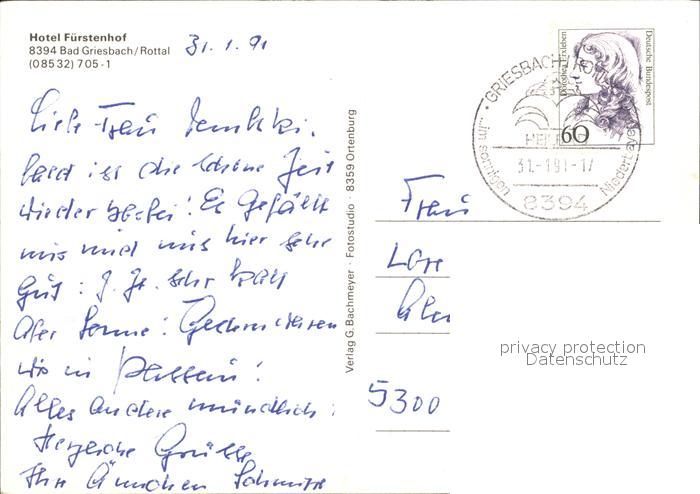 Hotel Fürstenhof
8394 Bad Griesbach/Rottal
(08532) 705-1
31.1.91
Liebe Frau
bald ist die schöne Zeit
wieder vorbei! Es gefällt
uns hier sehr
gut: z. Zt. sehr kalt
aber Sonne!
wo in Passau!
Alles andere mündlich!
Herzliche Grüße
Ihre Ännchen Schmitz
Verlag G. Bachmeyer · Fotostudio · 8359 Ortenburg
Deutsche Bundespost
60
GRIESBACH I. ROTTAL
31.-1.91-17
...im sonnigen Niederbayern
8394
Frau
Lore
5300
privacy protection
Datenschutz